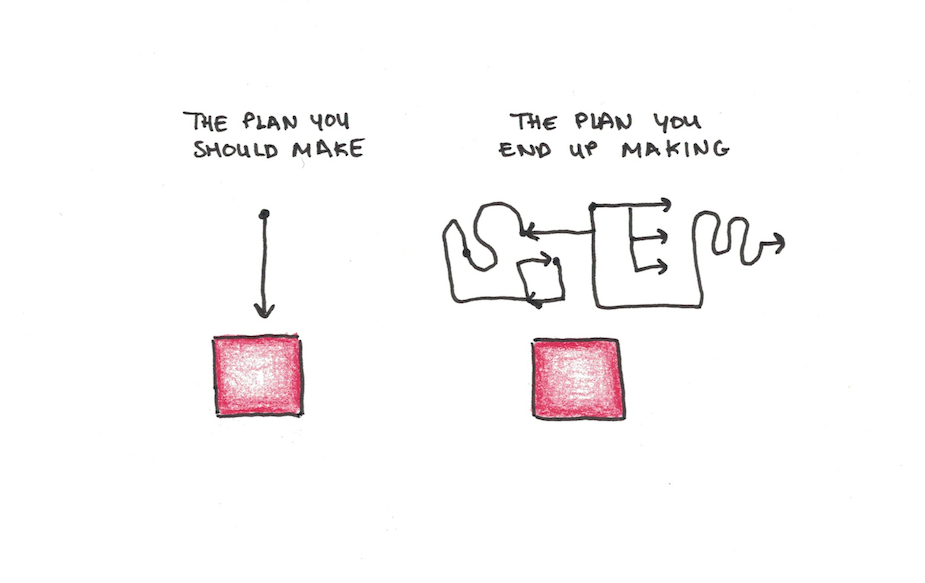 THE PLAN YOU
SHOULD MAKE
THE PLAN YOU
END UP MAKING